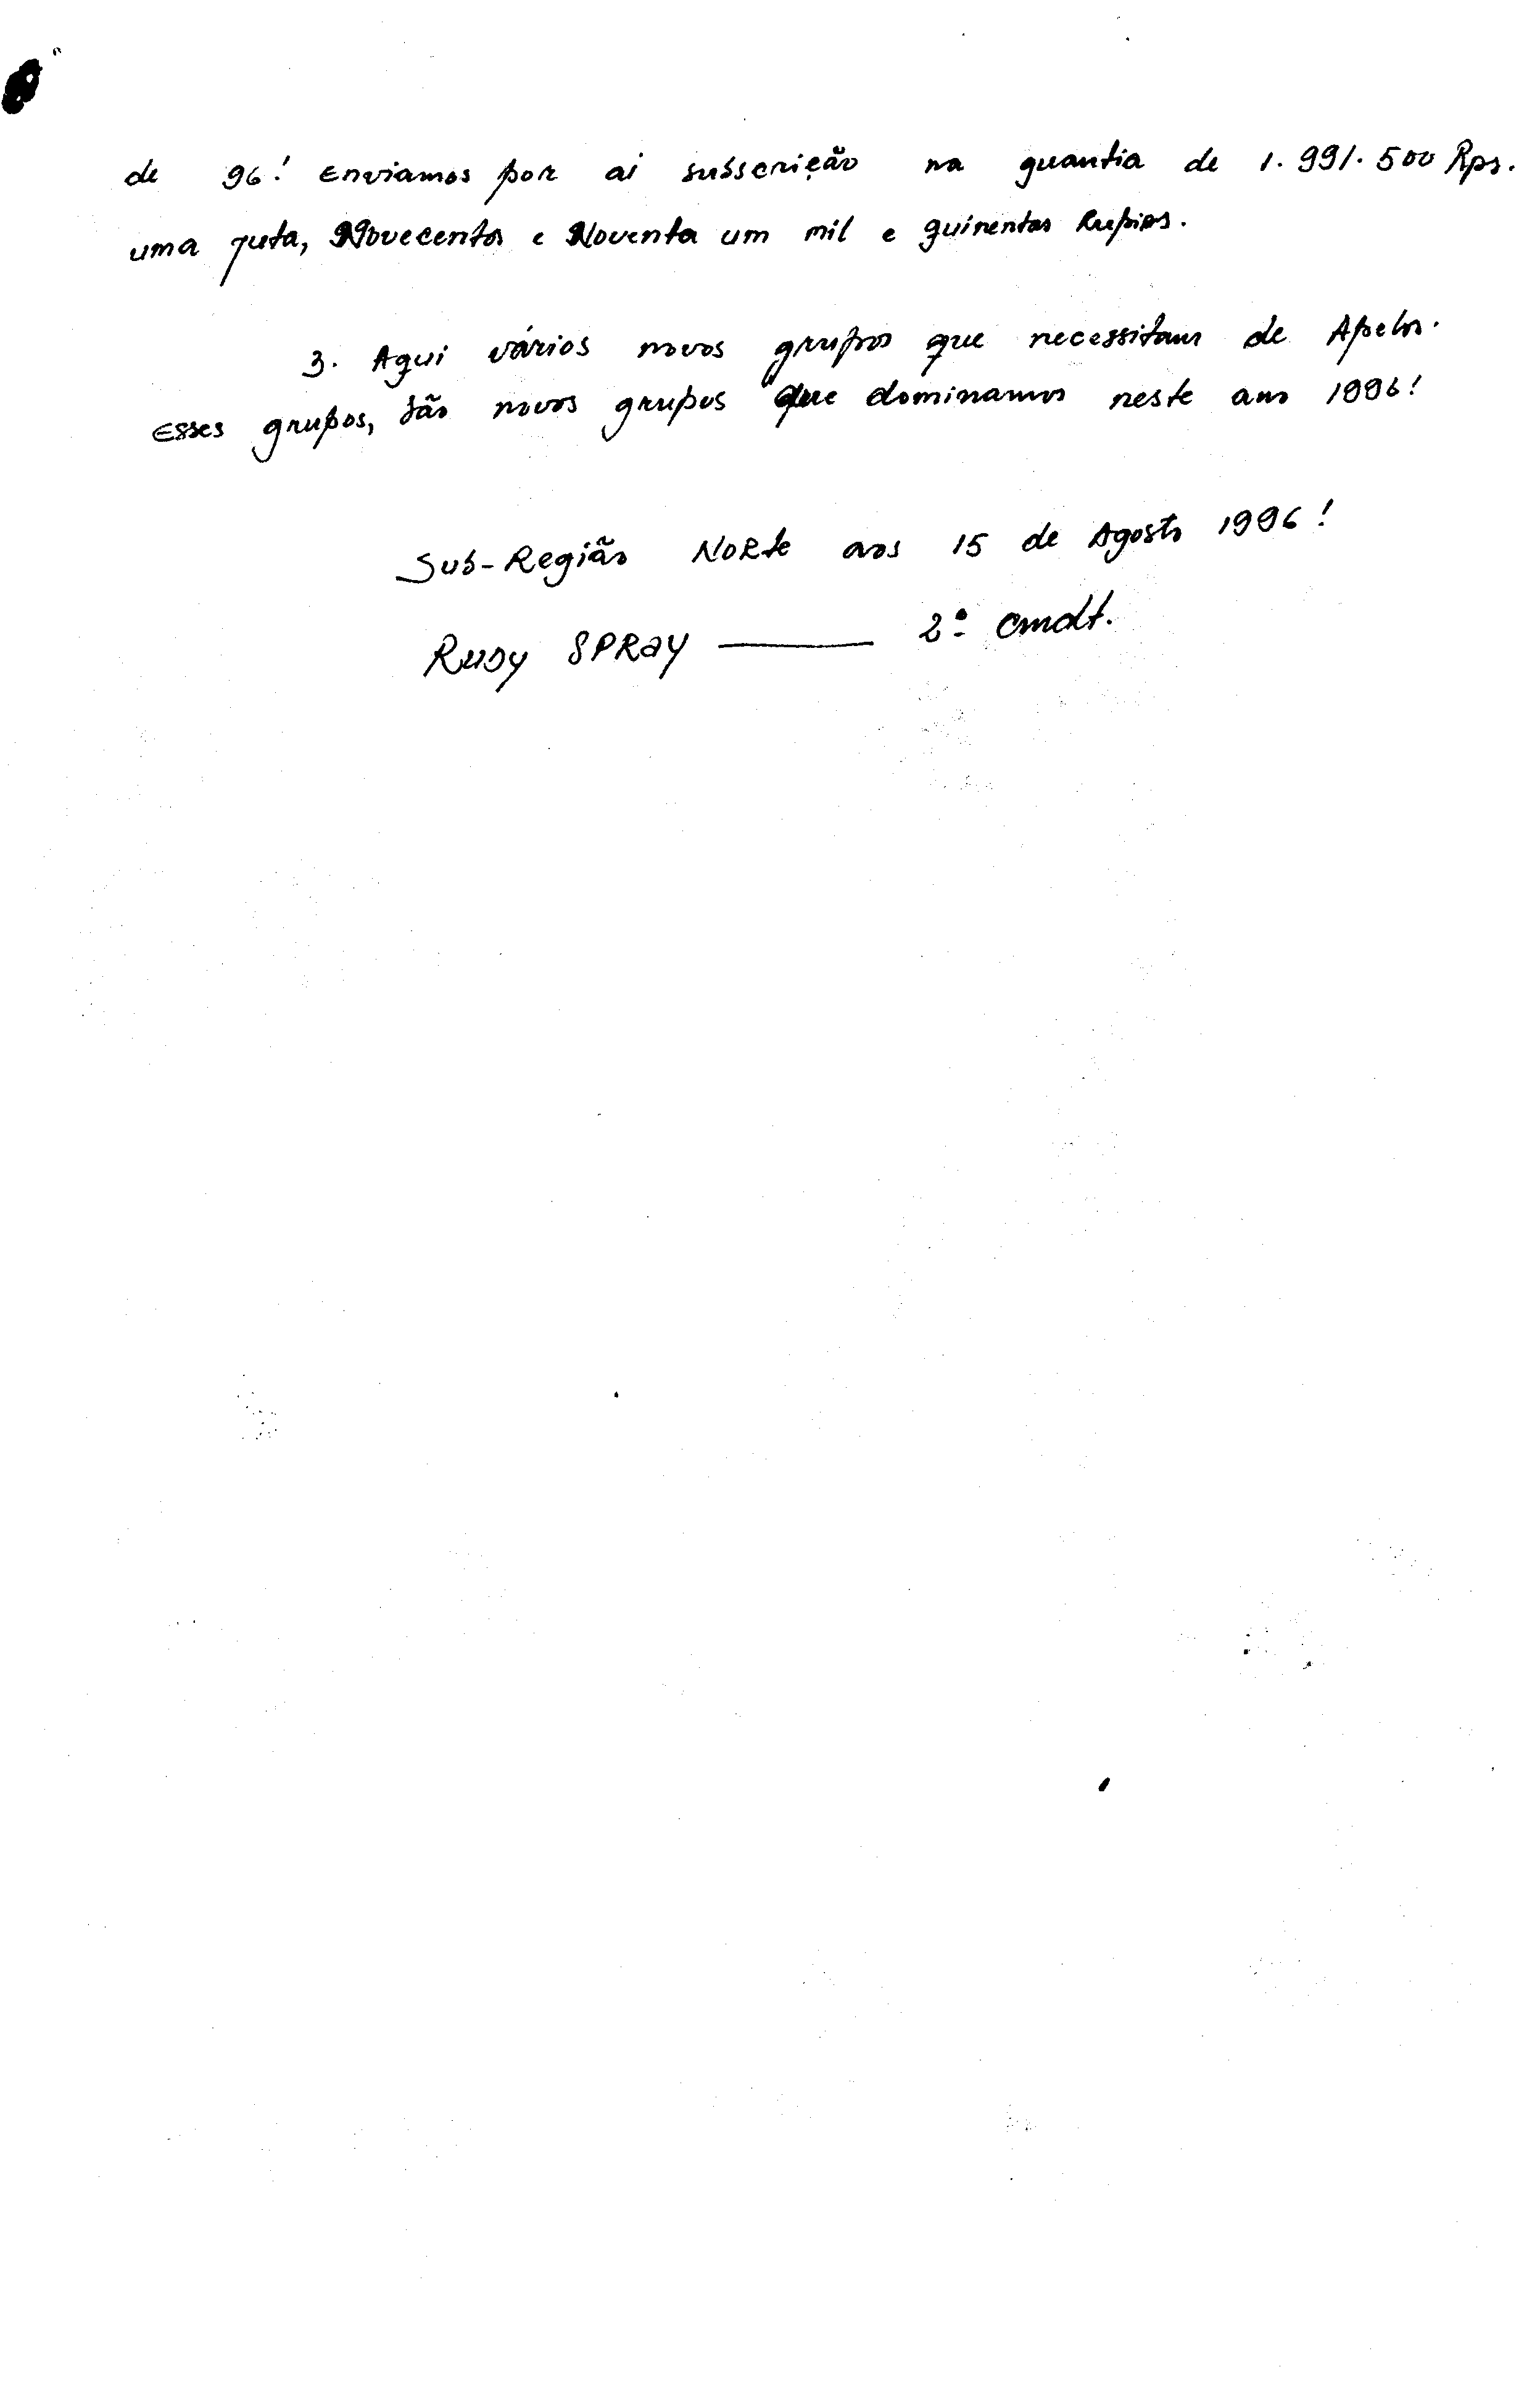 de 96! Enviamos por ai subscrição na quantia de 1.991.500 Rps.
uma juta, Novecentos e Noventa um mil e quinentas Rupias.
3. Aqui vários novos grupos que necessitam de Apelos.
Esses grupos, são novos grupos que dominamos neste ano 1996!
Sub-Região NoRte aos 15 de Agosto 1996!
RuBy SPRay — 2º cmdt.